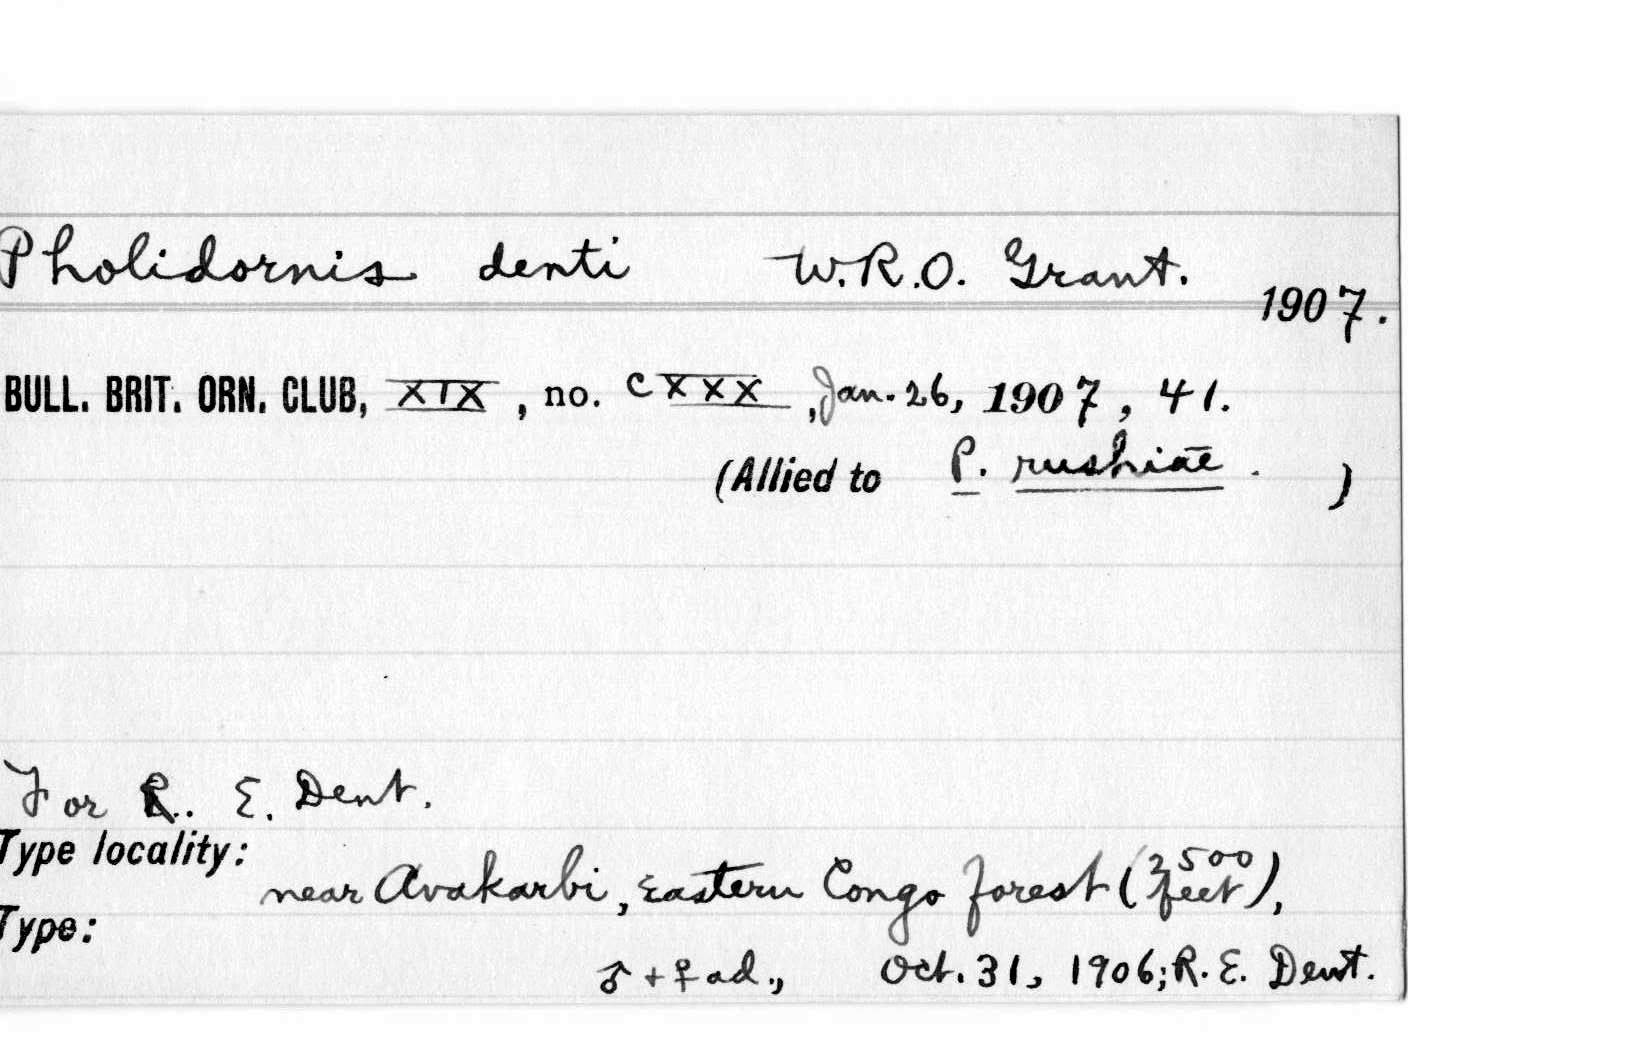 Pholidornis denti W.R.O. Grant.
1907.
BULL. BRIT. ORN. CLUB, XIX, no. CXXX, Jan. 26, 1907, 41.
(Allied to P. rushiae.)
For R. E. Dent.
Type locality:
near Avakarbi, Eastern Congo forest (3500 feet),
Type:
♂ + ♀ ad., Oct. 31, 1906; R. E. Dent.